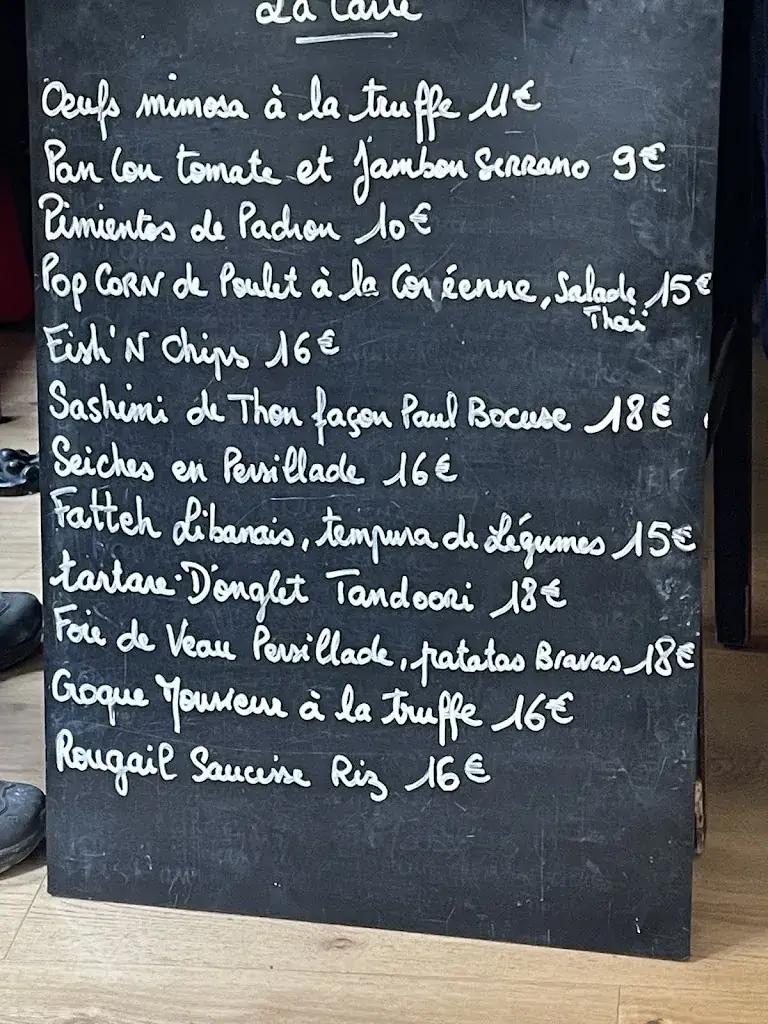 La Carte
Oeufs mimosa à la truffe 11€
Pan Con tomate et jambon Serrano 9€
Pimientos de Padron 10€
Pop CORN de Poulet à la Coréenne, Salade 15€
Thaï
Fish'N Chips 16€
Sashimi de Thon façon Paul Bocuse 18€
Seiches en Persillade 16€
Fatteh Libanais, tempura de Légumes 15€
tartare D'onglet Tandoori 18€
Foie de Veau Persillade, patatas Bravas 18€
Croque Monsieur à la truffe 16€
Rougail Saucisse Riz 16€